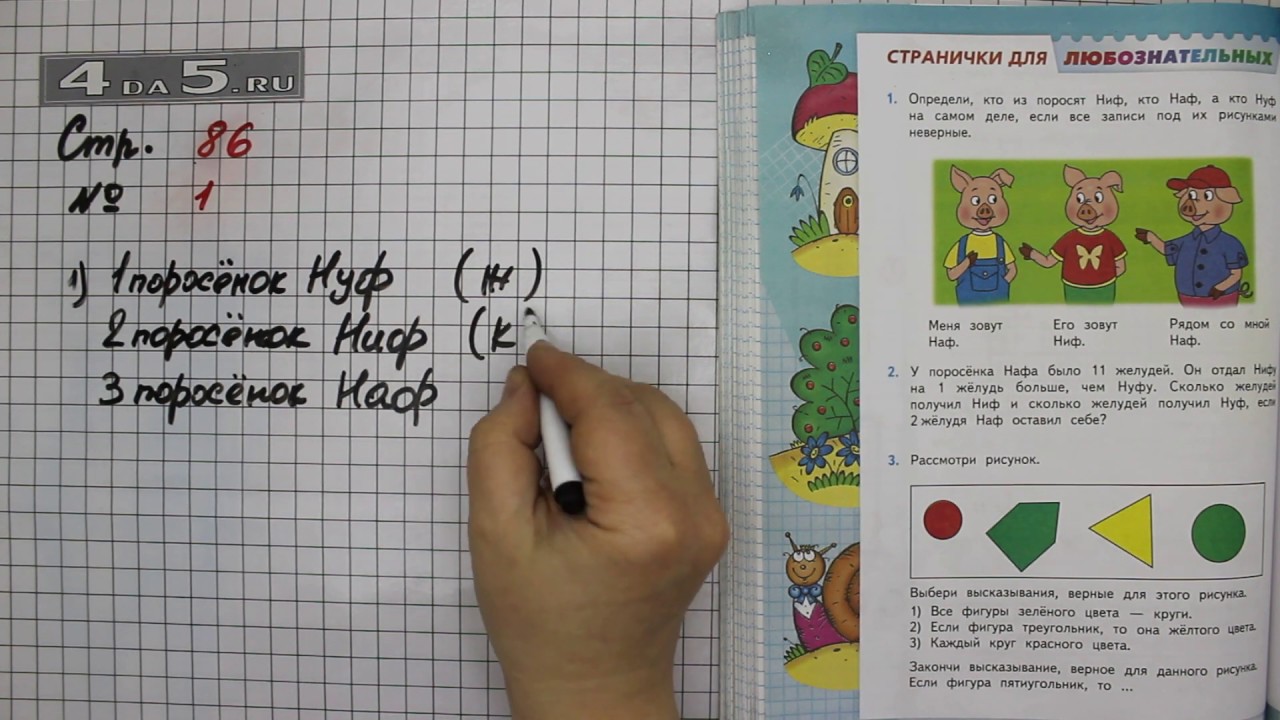 4 DA 5.RU
Стр. 86
№ 1
1) 1 поросёнок Нуф (ж)
2 поросёнок Ниф (к
3 поросёнок Наф
СТРАНИЧКИ ДЛЯ ЛЮБОЗНАТЕЛЬНЫХ
1. Определи, кто из поросят Ниф, кто Наф, а кто Нуф
на самом деле, если все записи под их рисунками
неверные.
Меня зовут
Наф.
Его зовут
Ниф.
Рядом со мной
Наф.
2. У поросёнка Нафа было 11 желудей. Он отдал Нифу
на 1 жёлудь больше, чем Нуфу. Сколько желудей
получил Ниф и сколько желудей получил Нуф, если
2 жёлудя Наф оставил себе?
3. Рассмотри рисунок.
Выбери высказывания, верные для этого рисунка.
1) Все фигуры зелёного цвета — круги.
2) Если фигура треугольник, то она жёлтого цвета.
3) Каждый круг красного цвета.
Закончи высказывание, верное для данного рисунка.
Если фигура пятиугольник, то ...